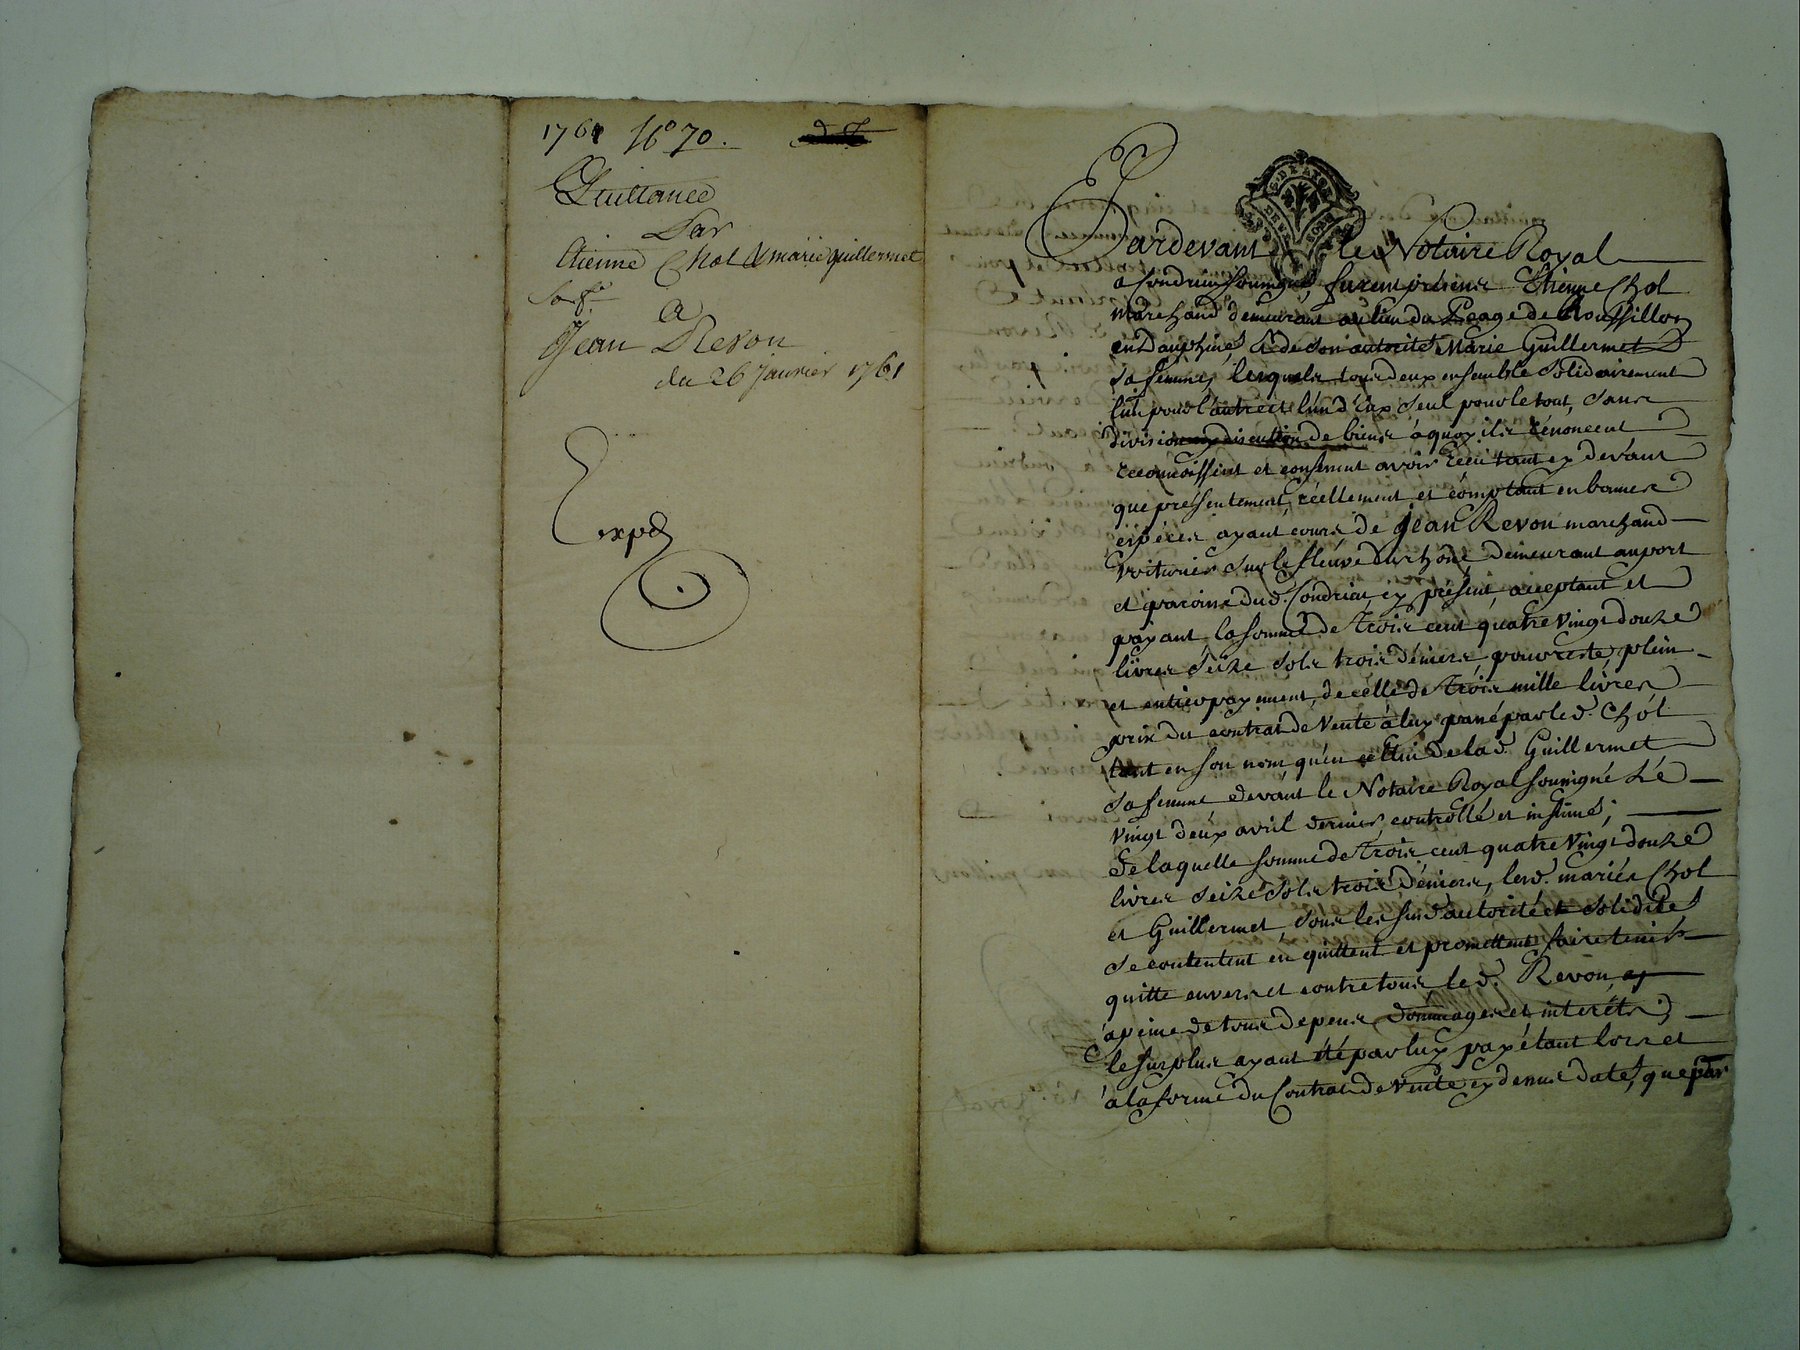 1761 N° 70.
Quittance
Par
Etienne Chol & marie guillermet
A
Jean Revon
du 26 Janvier 1761
Expé
Pardevant le Notaire Royal
a Condrieu soussigné, furent présens Etienne Chol
Marchand demeurant au lieu du Peage de Roussillon
en Dauphiné, & de son autorité Marie Guillermet
sa femme, lesquels tous deux ensemble solidairement
l'un pour l'autre et l'un d'eux seul pour le tout, sans
division ny discution de biens à quoy ils rénoncent
reconnoissent et confessent avoir reçu tant cy devant
que présentement, réellement et comptant en bonnes
espéces ayant cours de Jean Revon marchand
voiturier sur le fleuve du rhône demeurant au port
et paroisse dud. Condrieu cy présent, acceptant et
payant la somme de trois cent quatre vingt douze
livres seize sols trois déniers, pour reste, plein
et entier payement, de celle de trois mille livres
prix du contrat de vente à luy passé par led. Chol
tant en son nom qu'en celluy de lad. Guillermet
sa femme devant le Notaire Royal soussigné le
vingt deux avril dernier, controllé et insinué;
de laquelle somme de trois cent quatre vingt douze
livres seize sols trois déniers, lesd. mariés Chol
et Guillermet, sous les susd. autorité et solidité
se contentent en quittent et promettent faire tenir
quitte envers et contre tous led. Revon,
à peine de tous depens dommages et interêts;
le surplus ayant été par luy payé tant lors et
à la forme du Contrat de vente cy dessus daté, que par